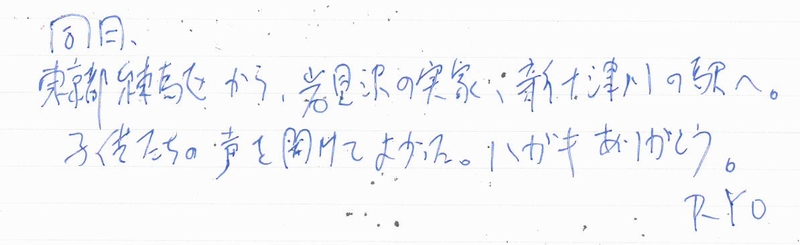 同日、
東京都練馬区から、岩見沢の実家、新十津川の駅へ。
子供たちの声を聞けてよかった。ハガキありがとう。
RYO